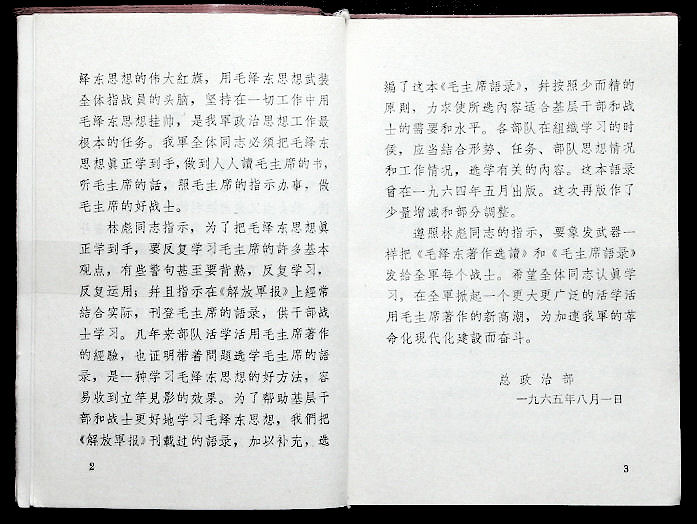 泽东思想的伟大紅旗，用毛泽东思想武装
全体指战員的头脑，坚持在一切工作中用
毛泽东思想挂帅，是我軍政治思想工作最
根本的任务。我軍全体同志必須把毛泽东
思想眞正学到手，做到人人讀毛主席的书，
听毛主席的話，照毛主席的指示办事，做
毛主席的好战士。
林彪同志指示，为了把毛泽东思想眞
正学到手，要反复学习毛主席的許多基本
观点，有些警句甚至要背熟，反复学习，
反复运用；并且指示在《解放軍报》上經常
結合实际，刊登毛主席的語录，供干部战
士学习。几年来部队活学活用毛主席著作
的經驗，也证明带着問題选学毛主席的語
录，是一种学习毛泽东思想的好方法，容
易收到立竿見影的效果。为了帮助基层干
部和战士更好地学习毛泽东思想，我們把
《解放軍报》刊載过的語录，加以补充，选
2
編了这本《毛主席語录》，并按照少而精的
原則，力求使所选內容适合基层干部和战
士的需要和水平。各部队在組織学习的时
候，应当結合形势、任务、部队思想情况
和工作情况，选学有关的內容。这本語录
曾在一九六四年五月出版。这次再版作了
少量增减和部分調整。
遵照林彪同志的指示，要象发武器一
样把《毛泽东著作选讀》和《毛主席語录》
发給全軍每个战士。希望全体同志认眞学
习，在全軍掀起一个更大更广泛的活学活
用毛主席著作的新高潮，为加速我軍的革
命化现代化建設而奋斗。
总政治部
一九六五年八月一日
3